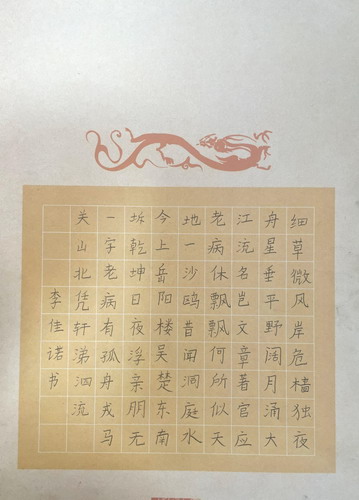 细草微风岸危樯独夜
舟星垂平野阔月涌大
江流名岂文章著官应
老病休飘飘何所似天
地一沙鸥昔闻洞庭水
今上岳阳楼吴楚东南
坼乾坤日夜浮亲朋无
一字老病有孤舟戎马
关山北凭轩涕泗流
李佳诺书